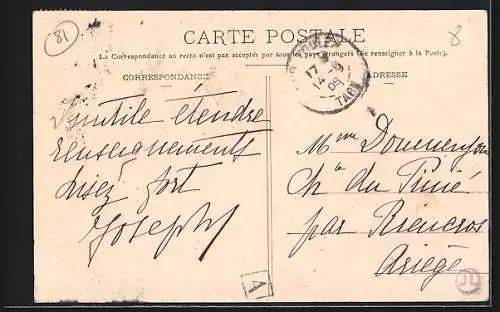 81
8
CARTE POSTALE
La Correspondance au recto n'est pas acceptée par tous les pays étrangers (Se renseigner à la Poste).
CORRESPONDANCE
ADRESSE
17
14 - 9
08
TARN
Inutile étendre
renseignements
disez fort
Joseph
Mme
Ch du Pinié
par Rieucros
Ariège
A
JL